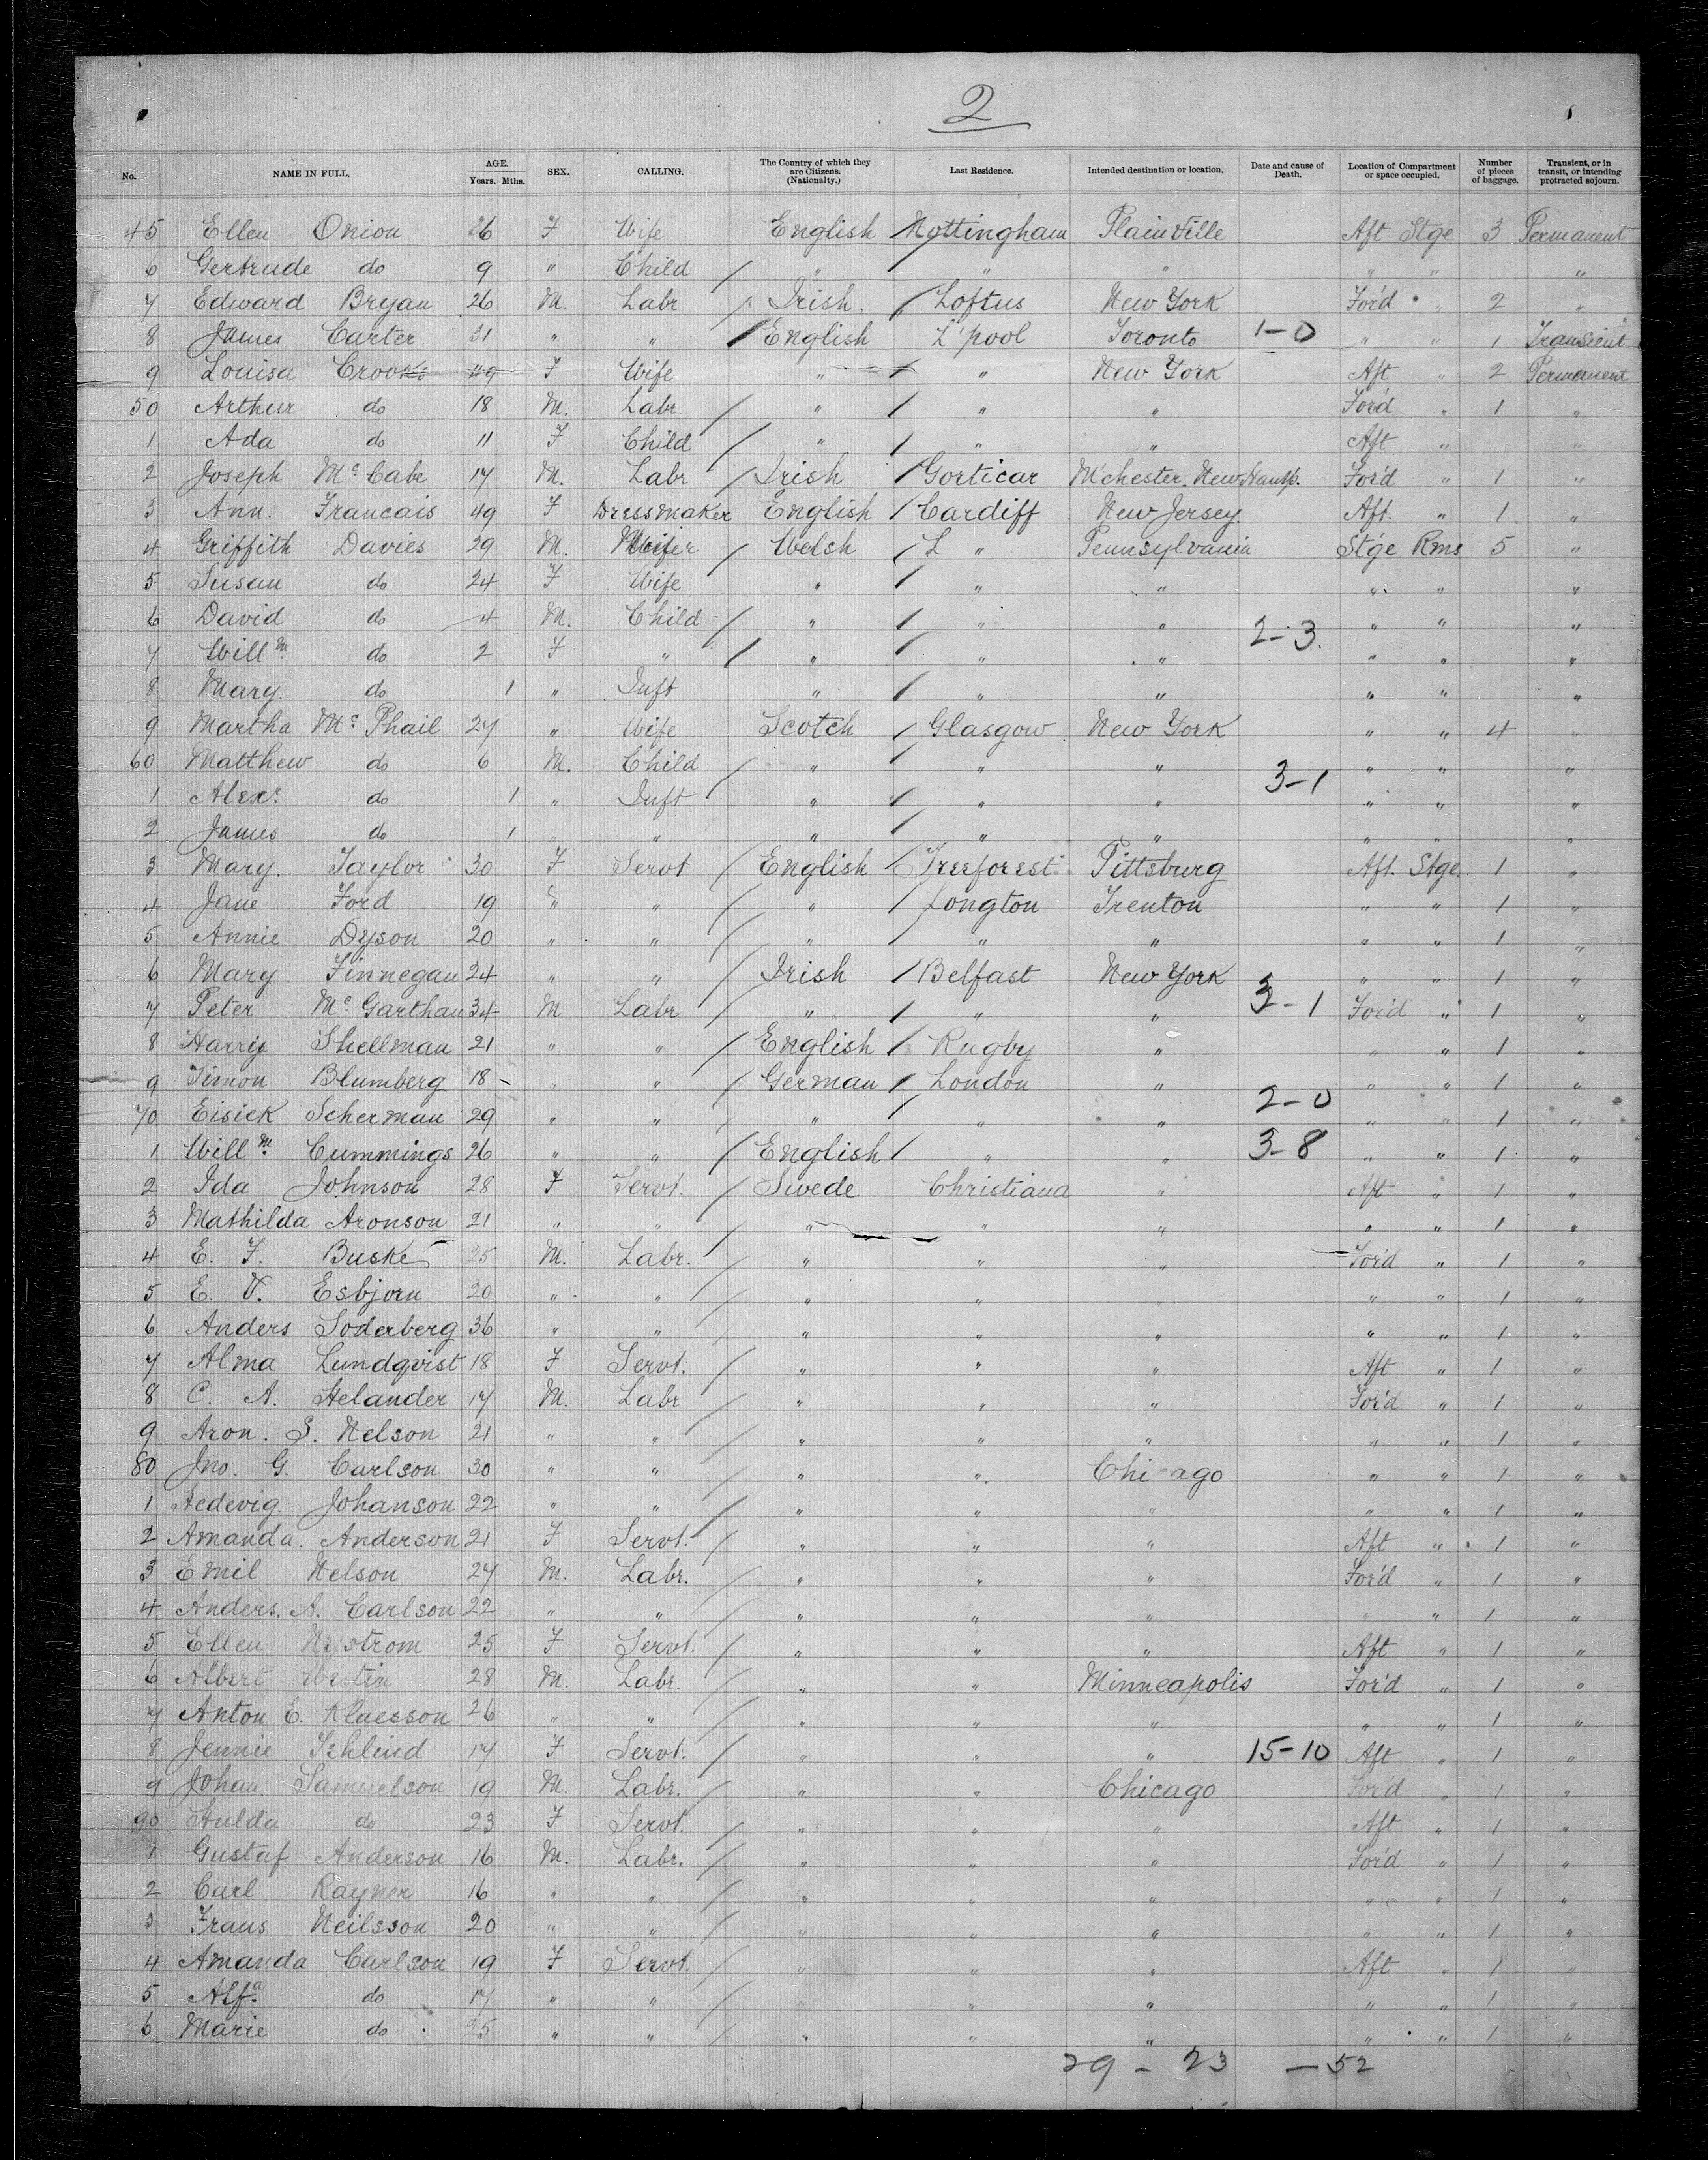 2
No. NAME IN FULL. AGE. Years. Mths. SEX. CALLING. The Country of which they are Citizens. (Nationalty.) Last Residence. Intended destination or location. Date and cause of Death. Location of Compartment or space occupied. Number of pieces of baggage. Transient, or in transit, or intending protracted sojourn.
45 Ellen Onion 26 F Wife English Nottingham Plainville Aft Stge 3 Permanent
6 Gertrude do 9 " Child " " " " " "
7 Edward Bryan 26 M. Labr Irish. Loftus New York For'd " 2 "
8 James Carter 31 " " English L'pool Toronto 1-0 " " 1 Transient
9 Louisa Crooks 49 F Wife " " New York Aft " 2 Permanent
50 Arthur do 18 M. Labr " " " For'd " 1 "
1 Ada do 11 F Child " " " Aft " "
2 Joseph McCabe 17 M. Labr Irish Gorticar M'chester. New Hamp. For'd " 1 "
3 Ann. Francais 49 F Dressmaker English Cardiff New Jersey. Aft. " 1 "
4 Griffith Davies 29 M. Welsh L " Pennsylvania Stge Rms 5 "
5 Susan do 24 F Wife " " " " " "
6 David do 4 M. Child " " " " " "
7 Willm. do 2 F " " " " 2-3. " " "
8 Mary. do 1 " Inft " " " " " "
9 Martha McPhail 27 " Wife Scotch Glasgow New York " " 4 "
60 Matthew do 6 M. Child " " " 3-1 " " "
1 Alexr. do 1 " Inft " " " " " "
2 James do 1 " " " " " " " "
3 Mary. Taylor 30 F Servt English Treeforest Pittsburg Aft. Stge. 1 "
4 Jane Ford 19 " " " Longton Trenton " " 1 "
5 Annie Dyson 20 " " " " " " " 1 "
6 Mary Finnegan 24 " " Irish Belfast New York " " 1 "
7 Peter McGarthan 34 M Labr " " " 3-1 For'd " 1 "
8 Harry Shellman 21 " " English Rugby " " " 1 "
9 Simon Blumberg 18 " " German London " " " 1 "
70 Eisick Scherman 29 " " " " " 2-0 " " 1 "
1 Willm. Cummings 26 " " English " " 3-8 " " 1 "
2 Ida Johnson 28 F Servt. Swede Christiana " Aft " 1 "
3 Mathilda Aronson 21 " " " " " " " 1 "
4 E. F. Buske 25 M. Labr. " " " For'd " 1 "
5 E. V. Esbjorn 20 " " " " " " " 1 "
6 Anders Soderberg 36 " " " " " " " 1 "
7 Alma Lundqvist 18 F Servt. " " " Aft " 1 "
8 C. A. Helander 17 M. Labr " " " For'd " 1 "
9 Aron. S. Nelson 21 " " " " " " " 1 "
80 Jno. G. Carlson 30 " " " " Chicago " " 1 "
1 Hedevig. Johanson 22 " " " " " " " 1 "
2 Amanda. Anderson 21 F Servt. " " " Aft " 1 "
3 Emil Nelson 27 M. Labr. " " " For'd " 1 "
4 Anders. A. Carlson 22 " " " " " " " 1 "
5 Ellen 25 F Servt. " " " Aft " 1 "
6 Albert Westin 28 M. Labr. " " Minneapolis For'd " 1 "
7 Anton E. Klaesson 26 " " " " " " " 1 "
8 Jennie 17 F Servt. " " " 15-10 Aft " 1 "
9 Johan. Samuelson 19 M. Labr. " " Chicago For'd " 1 "
90 Hulda do 23 F Servt. " " " Aft " 1 "
1 Gustaf Anderson 16 M. Labr. " " " For'd " 1 "
2 Carl Rayner 16 " " " " " " " 1 "
3 Frans Neilsson 20 " " " " " " " 1 "
4 Amanda Carlson 19 F Servt. " " " Aft " 1 "
5 Alfa. do 17 " " " " " " " 1 "
6 Marie do 25 " " " " " " " 1 "
29 - 23 - 52